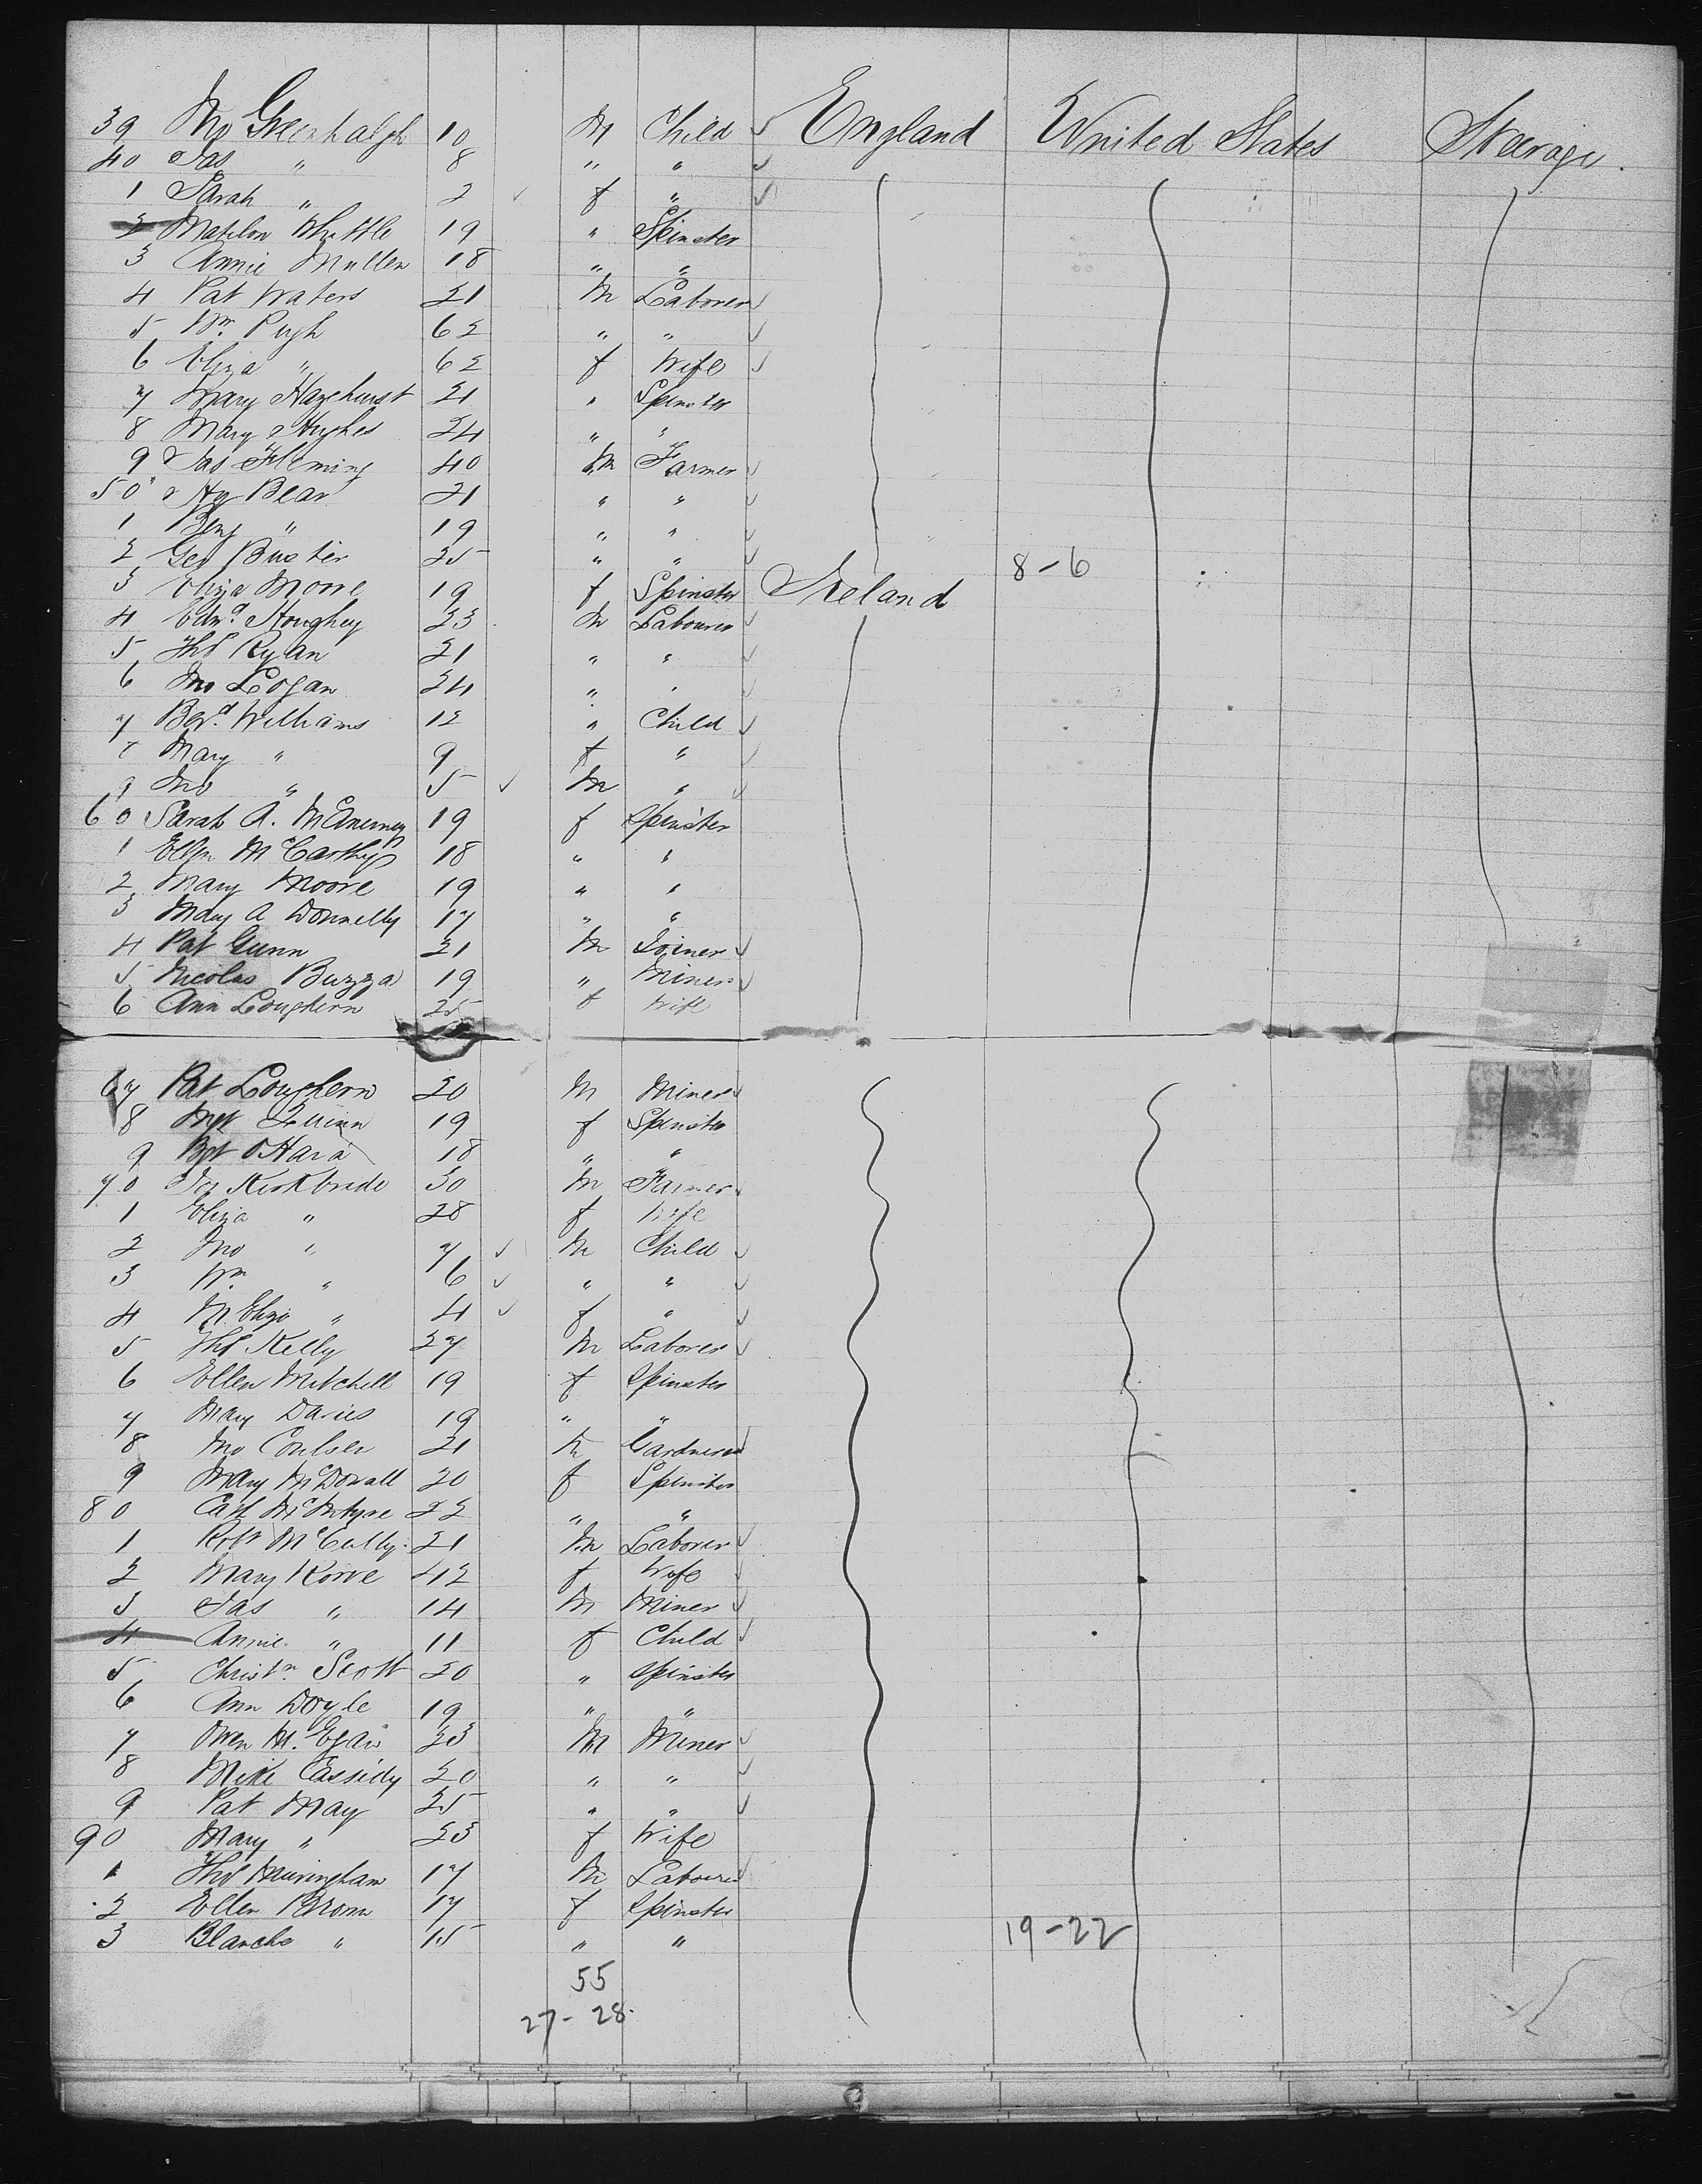 39 Jno Greenhalgh 10 M Child England United States Steerage.
40 Jas " 8 " "
1 Sarah " 2 f "
2 Whittle 19 " Spinster
3 Annie Mullen 18 " "
4 Pat Waters 21 M Laborer
5 Wm Pugh 62 " "
6 Eliza " 62 f Wife
7 Mary Hazehurst 21 " Spinster
8 Mary Hughes 24 " "
9 Jas Fleming 40 M Farmer
50 Hy Bear 21 " "
1 Benj " 19 " "
2 Geo 25 " " 8-6
3 Eliza Moore 19 f Spinster Ireland
4 Edwd Houghey 23 M Labourer
5 Thos Ryan 21 " "
6 Jno Logan 24 " "
7 Williams 12 " Child
8 Mary " 9 f "
9 Jno " 5 M "
60 Sarah A. McAnerney 19 f Spinster
1 Ellen McCarthy 18 " "
2 Mary Moore 19 " "
3 Mary A Donnelly 17 " "
4 Pat Gunn 21 M Joiner
5 Nicolas Buzza 19 " Miner
6 Ann Loughern 25 f Wife
67 Pat Loughern 20 M Miner
8 Mgt Quinn 19 f Spinster
9 Bgt O'Hara 18 " "
70 Kirkbride 30 M Farmer
1 Eliza " 28 f Wife
2 Jno " 7 M Child
3 Wm " 6 " "
4 M. Eliza " 4 f "
5 Thos Kelly 27 M Laborer
6 Ellen Mitchell 19 f Spinster
7 Mary Davies 19 " "
8 Jno 21 M Gardener
9 Mary McDowall 20 f Spinster
80 Cath McIntyre 22 " "
1 Robt McCully 21 M Laborer
2 Mary Rowe 42 f Wife
3 Jas " 14 M Miner
4 Annie " 11 f Child
5 Christn Scott 20 " Spinster
6 Ann Doyle 19 " "
7 Owen 23 M Miner
8 Mike Cassidy 20 " "
9 Pat May 25 " "
90 Mary " 23 f Wife
1 Thos 17 M Labourer
2 Ellen Brown 17 f Spinster
3 Blanche " 15 " " 19-22
55
27-28